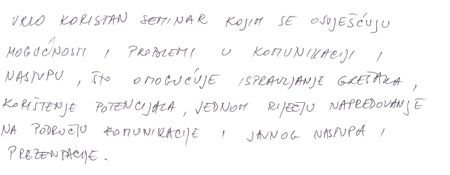 VRLO KORISTAN SEMINAR KOJIM SE OSVJEŠĆUJU
MOGUĆNOSTI I PROBLEMI U KOMUNIKACIJI I
NASTUPU, ŠTO OMOGUĆUJE ISPRAVLJANJE GREŠAKA,
KORIŠTENJE POTENCIJALA, JEDNOM RIJEČJU NAPREDOVANJE
NA PODRUČJU KOMUNIKACIJE I JAVNOG NASTUPA I
PREZENTACIJE.